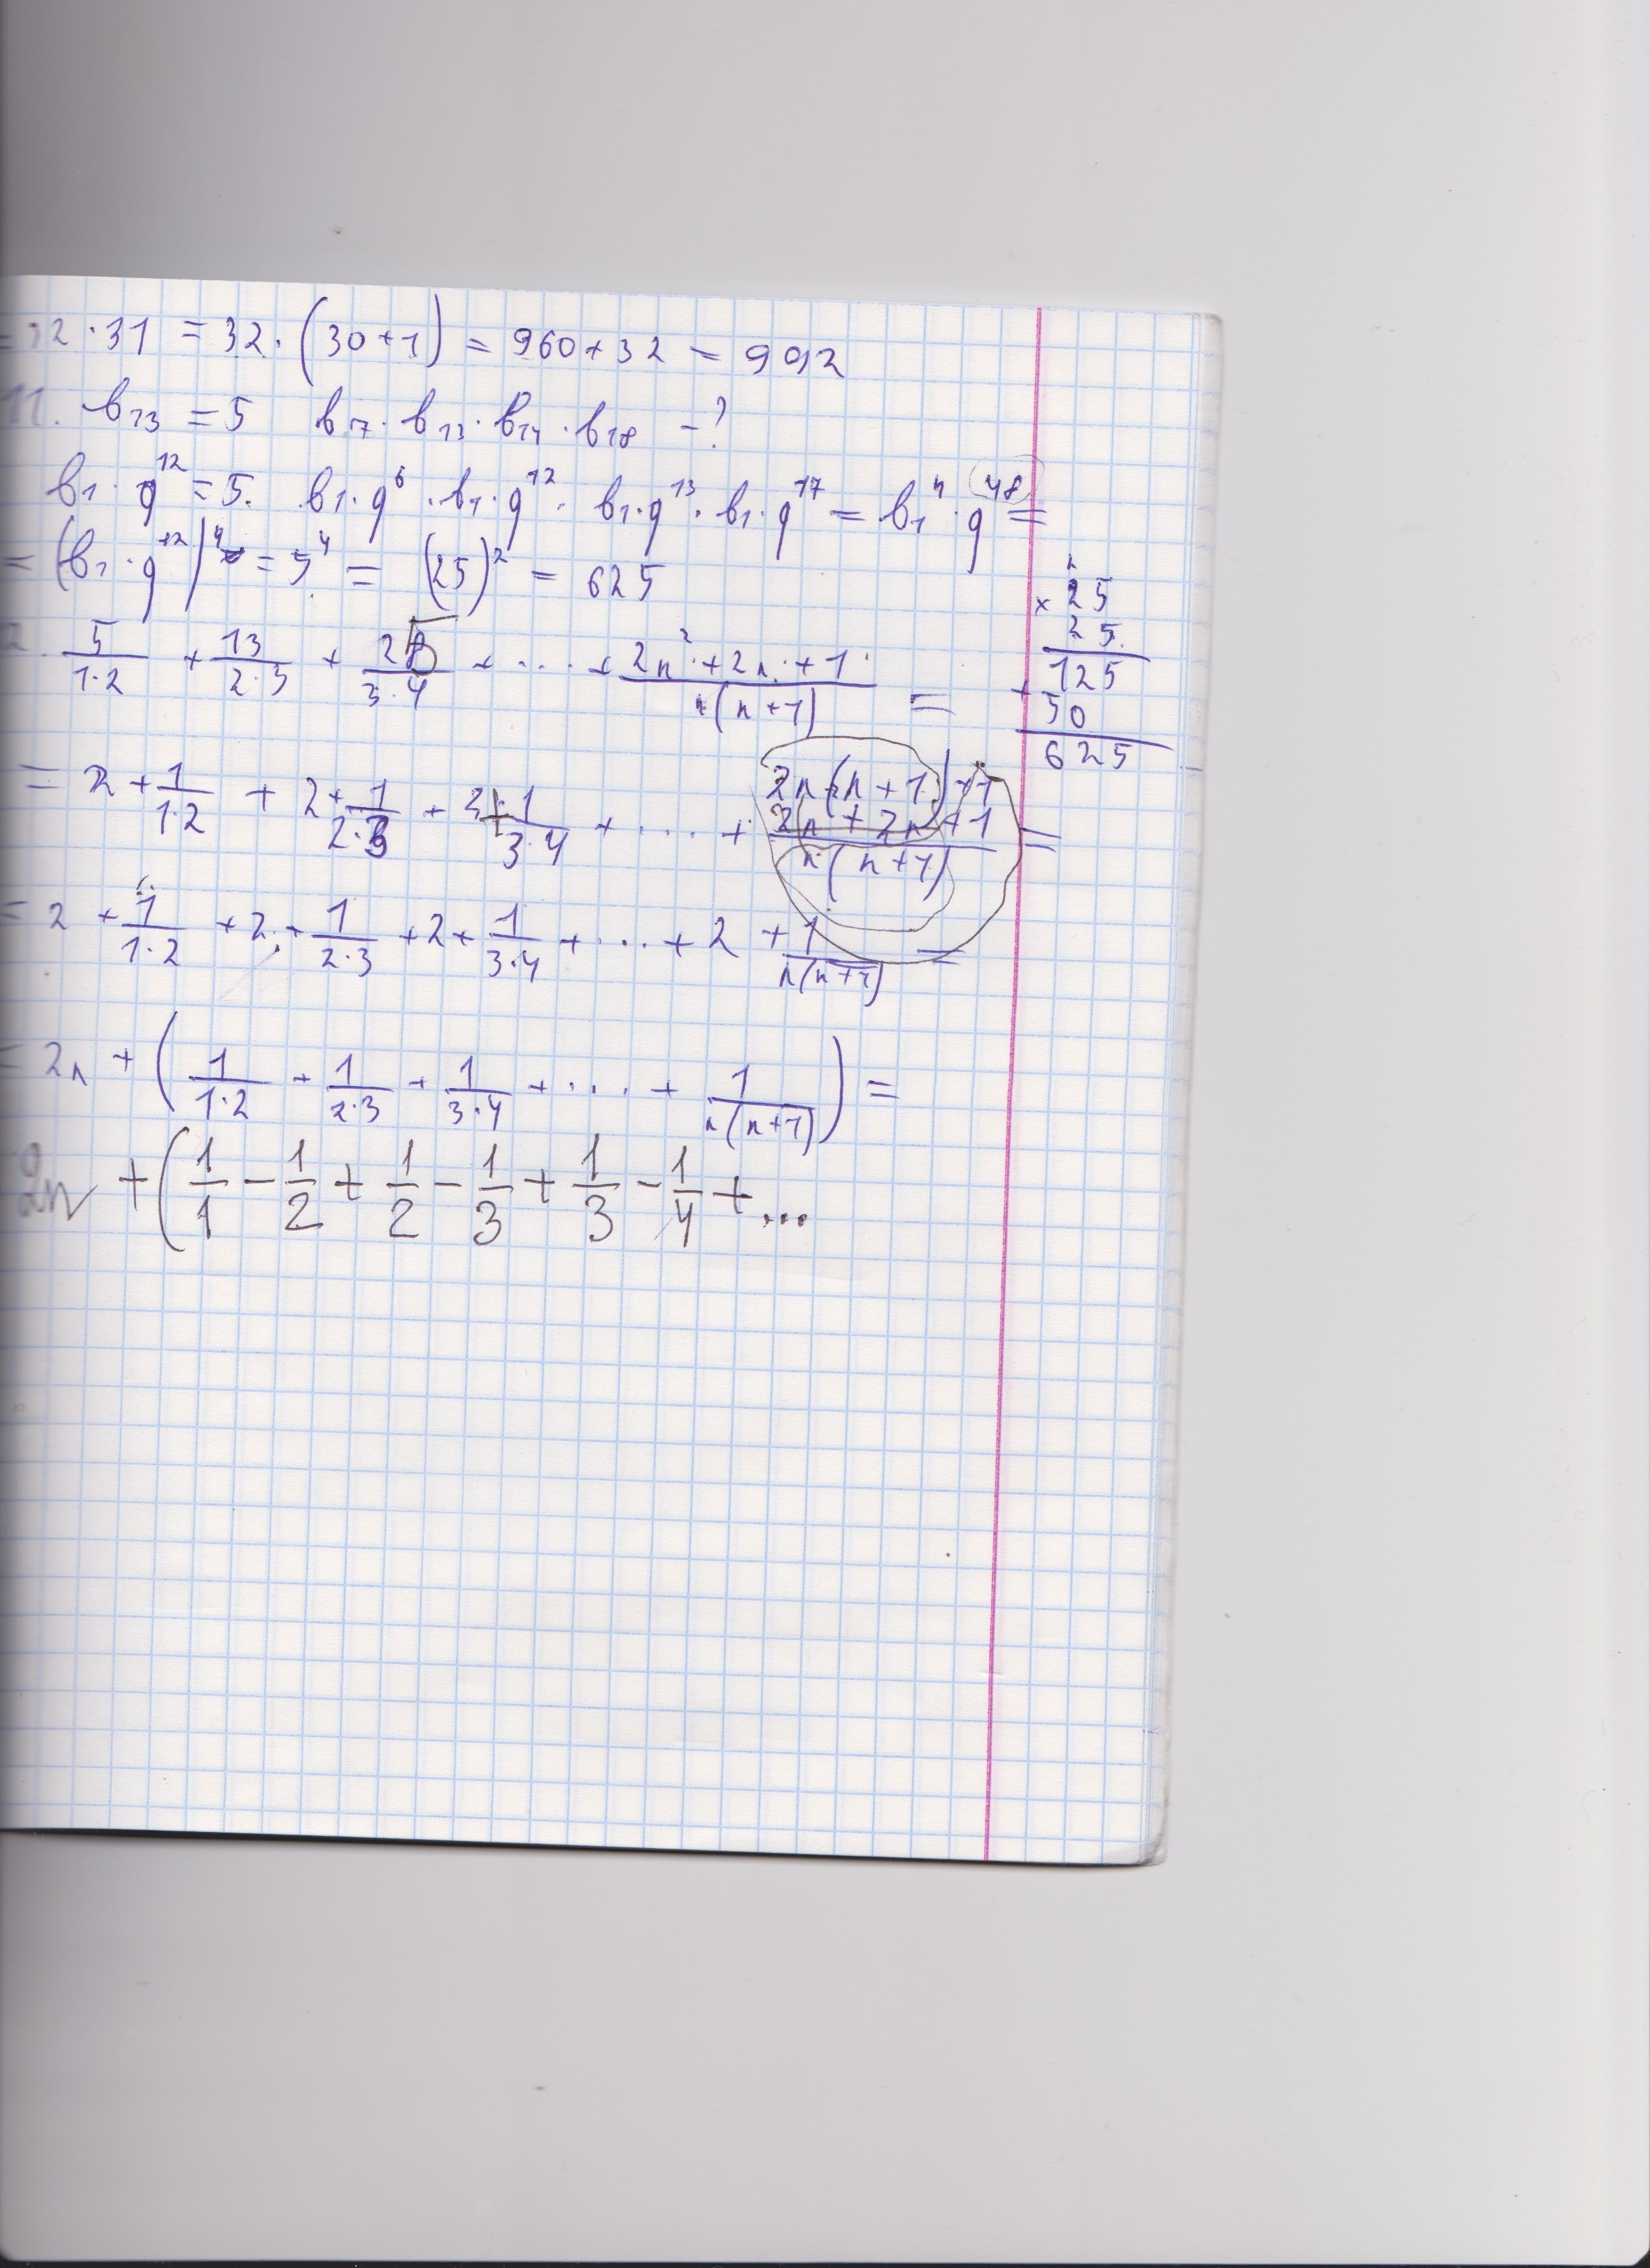 = 32 · 31 = 32 · (30 + 1) = 960 + 32 = 992
11. b₁₃ = 5 b₇ · b₁₃ · b₁₄ · b₁₈ - ?
b₁ · q¹² = 5. b₁ · q⁶ · b₁ · q¹² · b₁ · q¹³ · b₁ · q¹⁷ = b₁⁴ · q⁴⁸ =
= (b₁ · q¹²)⁴ = 5⁴ = (25)² = 625
2
× 25
25
125
+ 50
625
2. 5/(1·2) + 13/(2·3) + 25/(3·4) + ... + (2n² + 2n + 1)/(n(n+1)) =
= 2 + 1/(1·2) + 2 + 1/(2·3) + 2 + 1/(3·4) + ... + (2n(n+1)+1)/(n(n+1)) =
= 2 + 1/(1·2) + 2 + 1/(2·3) + 2 + 1/(3·4) + ... + 2 + 1/(n(n+1)) =
= 2n + (1/(1·2) + 1/(2·3) + 1/(3·4) + ... + 1/(n(n+1))) =
2n + (1/1 - 1/2 + 1/2 - 1/3 + 1/3 - 1/4 + ...